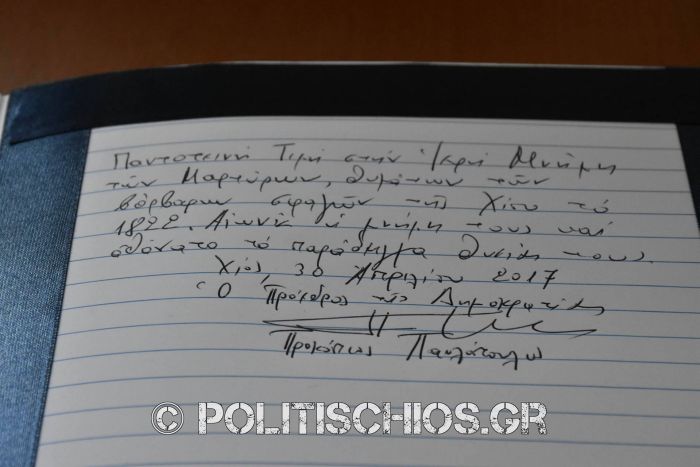 Παντοτεινή Τιμή στην Ιερή Μνήμη
των Μαρτύρων, θυμάτων των
βάρβαρων σφαγών της Χίου το
1822. Αιωνία η μνήμη τους και
αθάνατο το παράδειγμα θυσίας τους.
Χίος, 30 Απριλίου 2017
Ὁ Πρόεδρος της Δημοκρατίας
Προκόπιος Παυλόπουλος
© POLITISCHIOS.GR